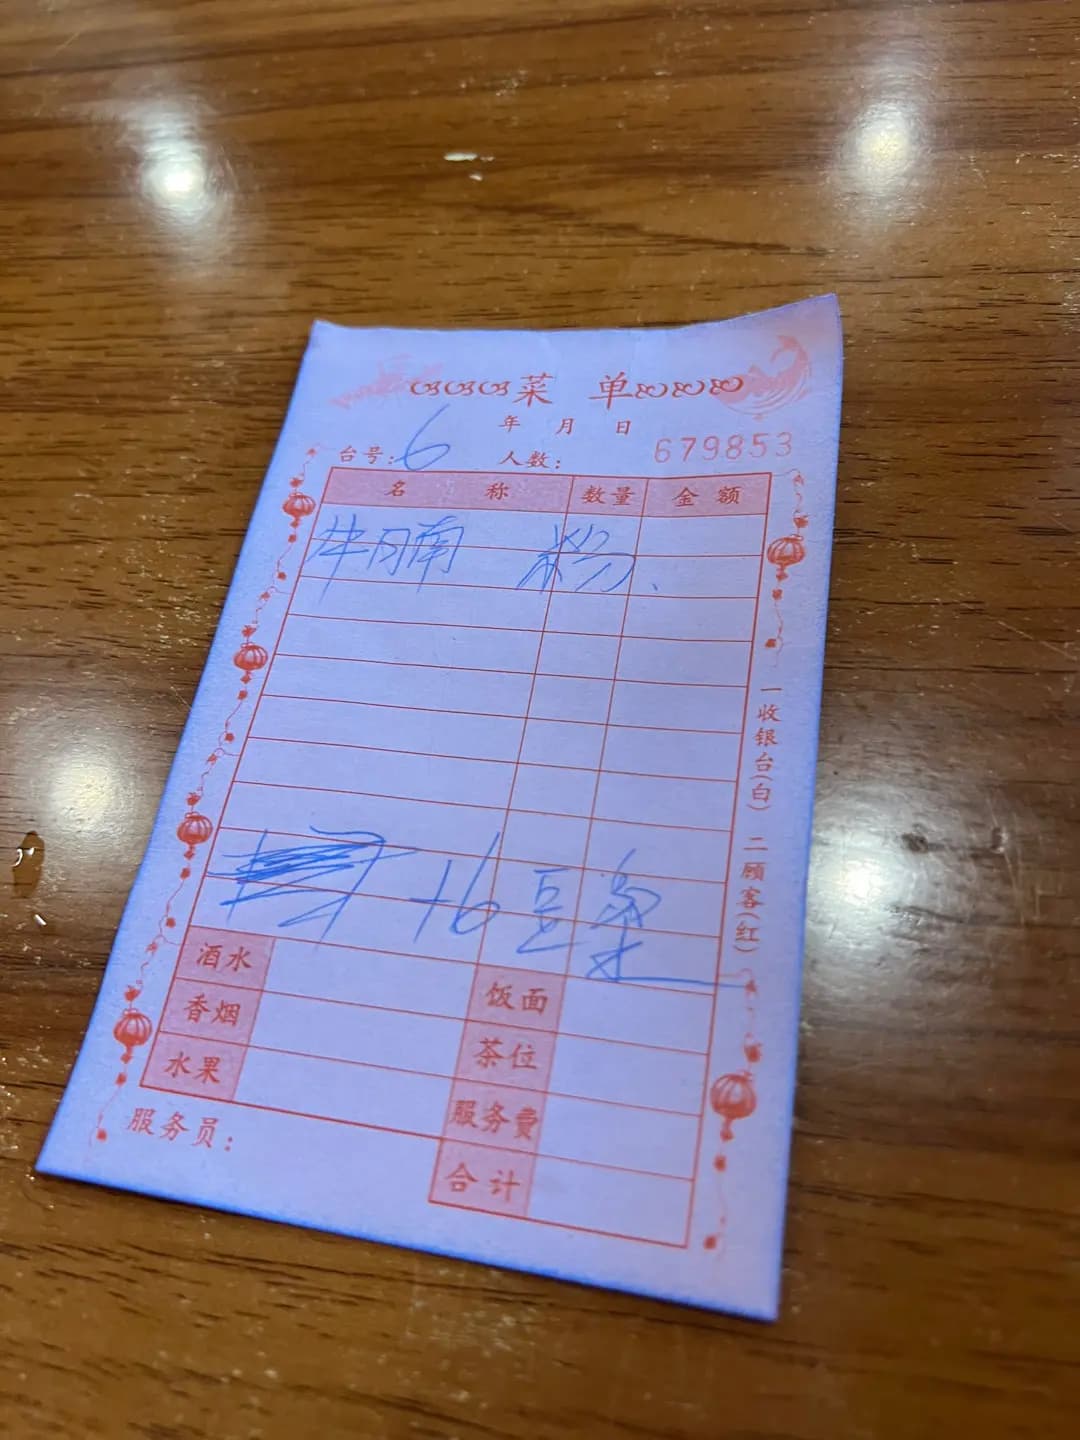 菜 单
年 月 日
台号: 6 人数: 679853
名 称 数量 金 额
牛腩 粉、
+6 豆浆
酒水
香烟
水果
饭面
茶位
服务费
合计
服务员:
一收银台(白) 二顾客(红)